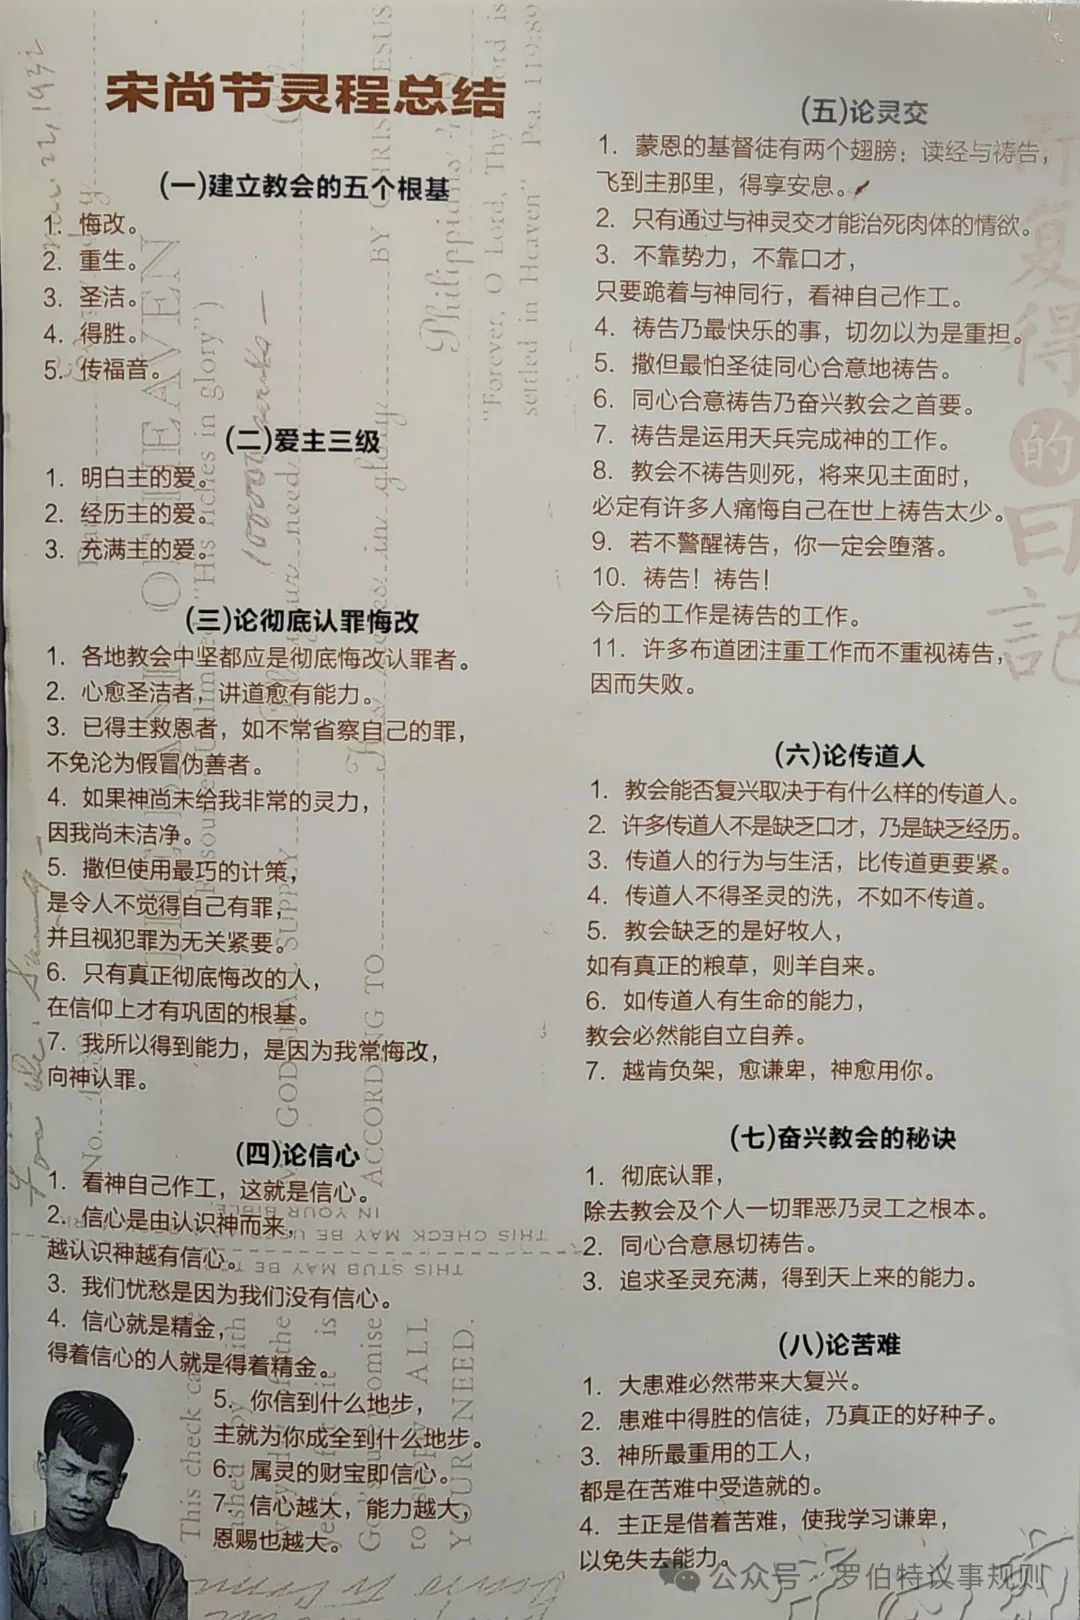 宋尚节灵程总结
(一)建立教会的五个根基
1. 悔改。
2. 重生。
3. 圣洁。
4. 得胜。
5. 传福音。
(二)爱主三级
1. 明白主的爱。
2. 经历主的爱。
3. 充满主的爱。
(三)论彻底认罪悔改
1. 各地教会中坚都应是彻底悔改认罪者。
2. 心愈圣洁者，讲道愈有能力。
3. 已得主救恩者，如不常省察自己的罪，
不免沦为假冒伪善者。
4. 如果神尚未给我非常的灵力，
因我尚未洁净。
5. 撒但使用最巧的计策，
是令人不觉得自己有罪，
并且视犯罪为无关紧要。
6. 只有真正彻底悔改的人，
在信仰上才有巩固的根基。
7. 我所以得到能力，是因为我常悔改，
向神认罪。
(四)论信心
1. 看神自己作工，这就是信心。
2. 信心是由认识神而来，
越认识神越有信心。
3. 我们忧愁是因为我们没有信心。
4. 信心就是精金，
得着信心的人就是得着精金。
5. 你信到什么地步，
主就为你成全到什么地步。
6. 属灵的财宝即信心。
7. 信心越大，能力越大，
恩赐也越大。
(五)论灵交
1. 蒙恩的基督徒有两个翅膀：读经与祷告，
飞到主那里，得享安息。
2. 只有通过与神灵交才能治死肉体的情欲。
3. 不靠势力，不靠口才，
只要跪着与神同行，看神自己作工。
4. 祷告乃最快乐的事，切勿以为是重担。
5. 撒但最怕圣徒同心合意地祷告。
6. 同心合意祷告乃奋兴教会之首要。
7. 祷告是运用天兵完成神的工作。
8. 教会不祷告则死，将来见主面时，
必定有许多人痛悔自己在世上祷告太少。
9. 若不警醒祷告，你一定会堕落。
10. 祷告！祷告！
今后的工作是祷告的工作。
11. 许多布道团注重工作而不重视祷告，
因而失败。
(六)论传道人
1. 教会能否复兴取决于有什么样的传道人。
2. 许多传道人不是缺乏口才，乃是缺乏经历。
3. 传道人的行为与生活，比传道更要紧。
4. 传道人不得圣灵的洗，不如不传道。
5. 教会缺乏的是好牧人，
如有真正的粮草，则羊自来。
6. 如传道人有生命的能力，
教会必然能自立自养。
7. 越肯负架，愈谦卑，神愈用你。
(七)奋兴教会的秘诀
1. 彻底认罪，
除去教会及个人一切罪恶乃灵工之根本。
2. 同心合意恳切祷告。
3. 追求圣灵充满，得到天上来的能力。
(八)论苦难
1. 大患难必然带来大复兴。
2. 患难中得胜的信徒，乃真正的好种子。
3. 神所最重用的工人，
都是在苦难中受造就的。
4. 主正是借着苦难，使我学习谦卑，
以免失去能力。
复得的日記
"Forever, O Lord, Thy Word is
settled in Heaven" Psa. 119:89
Philippians
BY CHRIS ESUS
"His riches in glory")
ACCORDING TO
THIS CHECK MAY BE
IN YOUR BIBLE
THIS STUB MAY BE
This check
YOUR NEED.
公众号·罗伯特议事规则